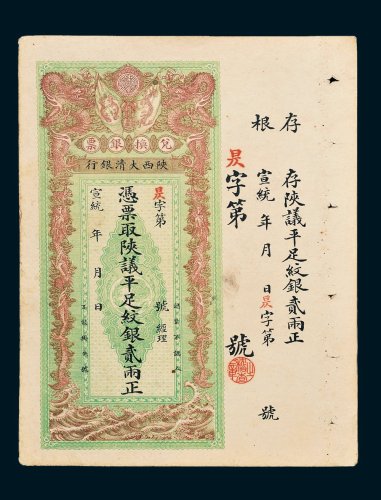 兌換銀票
陝西大清銀行
昃字第 號 經理
憑票取陝議平足紋銀貳兩正
宣統 年 月 日
存根
存陝議平足紋銀貳兩正
宣統 年 月 日昃字第 號
昃字第 號